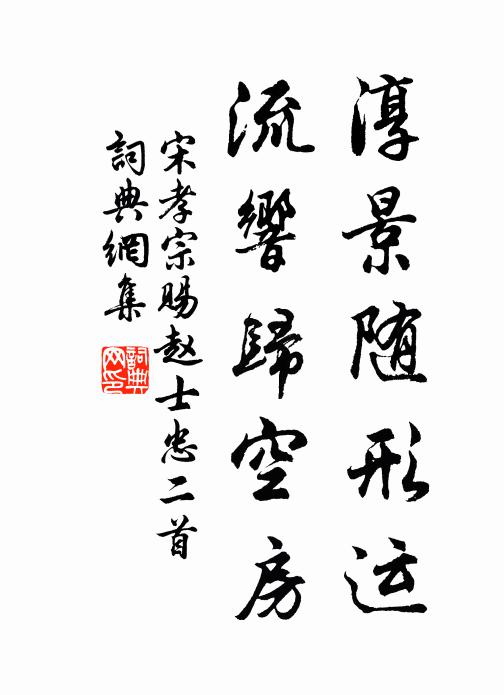 淳景随形运
流響歸空房
宋孝宗賜赵士忠二首
詞典網集
詞典网印